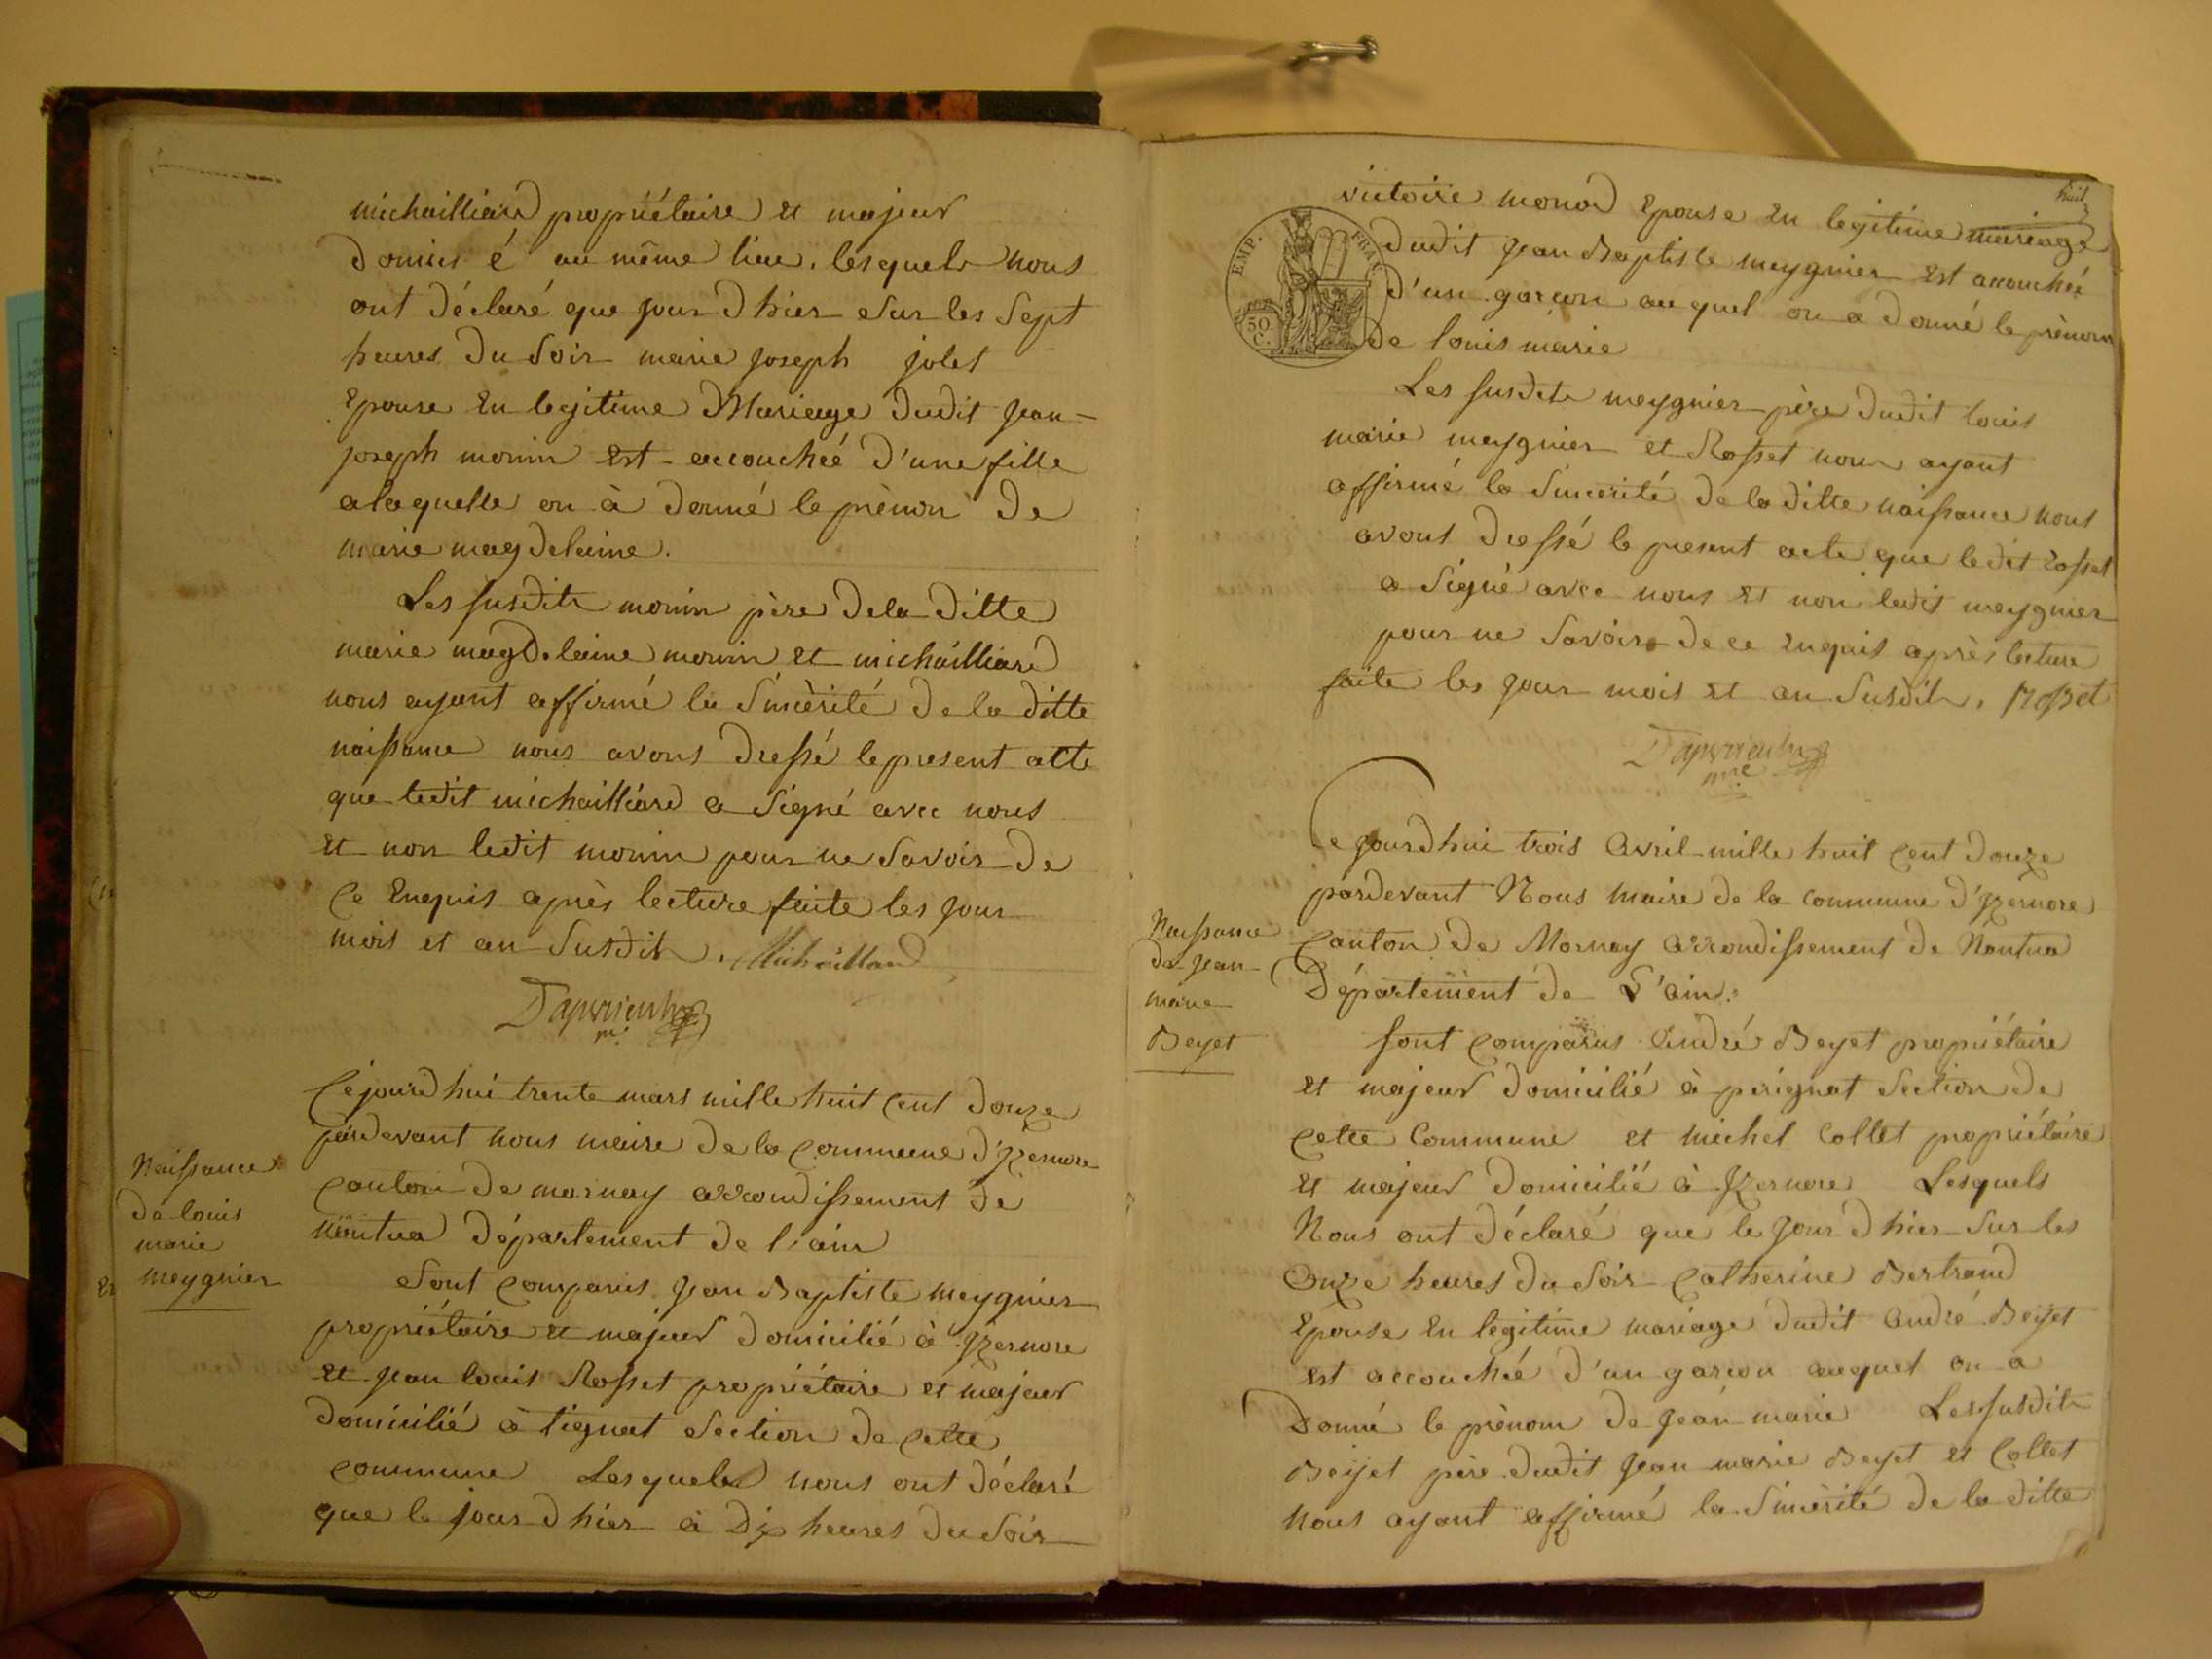 michailliard propriétaire et majeur
domicié au même lieu. lesquels nous
ont déclaré que jour d hier sur les sept
heures du soir marie joseph jolet
Epouse En legitime Mariage dudit jean
joseph monin Est accouchée d'une fille
a laquelle on à donné le prènon de
marie magdelaine.
Les susdits monin père dela ditte
marie magdelaine monin et michailliard
nous ayant affirmé la sincèrité de la ditte
naissance nous avons dressé le present atte
que ledit michailliard a signé avec nous
et non ledit monin pour ne savoir de
Ce Enquis après lecture faite les jour
mois et an susdits. Michaillard
Cejourd hui trente mars mille huit Cent douze
pardevant nous maire de la Commune d'Yzernore
Canton de mornay arrondissement de
nantua département de l'ain
Naissance
de louis
marie
meygnier
Sont Comparus jean Baptiste meygnier
propriétaire et majeur domicilié à Yzernore
et jean louis Rosset propriétaire et majeur
domicilié à tignat Section de Cette
commune Lesquels nous ont déclaré
que le jour d hier à dix heures du soir
huit
victoire monod Epouse En legitime mariage
dudit jean Baptiste meygnier Est accouchée
d'un garçon au quel on a donné le prènom
de louis marie
EMP. FRAN
50 C.
Les susdits meygnier père dudit louis
marie meygnier et Rosset nous ayant
affirmé la Sincèrité de la ditte naissance nous
avons dressé le present acte que ledit rosset
a Signé avec nous et non ledit meygnier
pour ne Savoir de ce Enquis après lecture
faite les jour mois et an susdits. Rosset
Ce jourdhui trois Avril mille huit Cent douze
pardevant Nous maire de la commune d'Yzernore
Canton de Mornay arrondissement de Nantua
Département de L'ain.
Naissance
de jean
marie
Beyet
Sont Comparus André Beyet propriétaire
et majeur domicilié à perignat Section de
Cette Commune et michel Collet propriétaire
et majeur domicilié à Yzernore Lesquels
Nous ont déclaré que le jour d hier sur les
Onze heures du soir Catherine Bertrand
Epouse En légitime mariage dudit André Beyet
Est accouchée d'un garcon auquel on a
Donné le prènom de jean marie Les susdits
Beyet père dudit jean marie Beyet et Collet
nous ayant affirmé la Sincèrité de la ditte